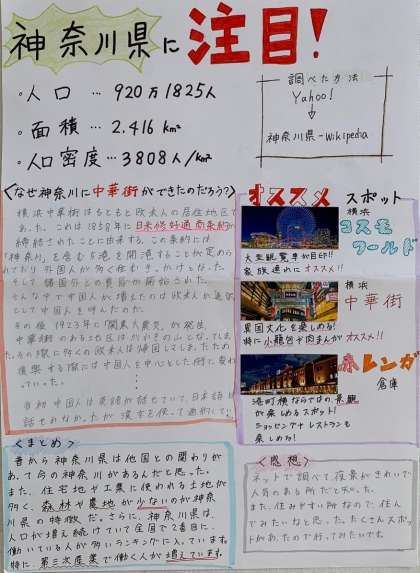 神奈川県に注目!
・人口 … 920万1825人
・面積 … 2.416 km²
・人口密度…3808人/km²
調べた方法
Yahoo!
↓
神奈川県-Wikipedia
<なぜ神奈川に中華街ができたのだろう?>
横浜中華街はもともと欧米人の居住地区であった。これは1858年に日米修好通商条約が
締結されたことに由来する。この条約には
「神奈川」を含む5港を開港することが定め
そして諸国外との貿易が開始された。
そんな中で中国人が増えたのは欧米人が通訳
として中国人を呼んだため。
その後1923年に「関東大震災」が発生。
復興する際には中国人を中心とした街に変わ
っていった。
当初中国人は英語が話せていて、日本語は
オススメ スポット
横浜
コスモ
ワールド
大型観覧車が目印!!
家族連れにオススメ!!
横浜
中華街
異国文化を楽しめる!
特に小籠包や肉まんがオススメ!!
赤レンガ
倉庫
港町横浜ならではの景観
が楽しめるスポット!
ショッピングやレストランも
楽しめる!
<まとめ>
昔から神奈川県は他国との関わりが
あって今の神奈川があるんだと思った。
また、住宅地や工業に使われる土地が
多く、森林や農地が少ないのが神奈
川県の特徴だ。さらに、神奈川県は、
人口が増え続けていて全国で2番目に、
働いている人が多いランキングに入っています。
特に第三次産業で働く人が増えています。
<感想>
ネットで調べて夜景がきれいで
人気のある所だと思った。
また、住みやすい所なので、住ん
でみたいなと思った。たくさんスポ
ットがあったので行ってみたいです。